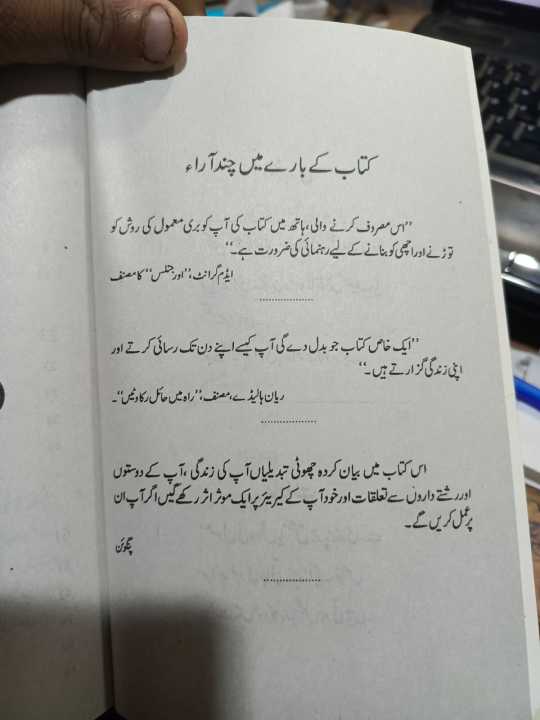 کتاب کے بارے میں چند آراء
"اس مصروف کرنے والی، ہاتھ میں کتاب کی آپ کو بری معمول کی روش کو
توڑنے اور اچھی کو بنانے کے لیے رہنمائی کی ضرورت ہے۔"
ایڈم گرانٹ، "اور جنلس" کا مصنف
"ایک خاص کتاب جو بدل دے گی آپ کیسے اپنے دن تک رسائی کرتے اور
اپنی زندگی گزارتے ہیں۔"
ریان ہالیڈے، مصنف، "راہ میں حائل رکاوٹیں"۔
اس کتاب میں بیان کردہ چھوٹی تبدیلیاں آپ کی زندگی، آپ کے دوستوں
اور رشتے داروں سے تعلقات اور خود آپ کے کیریئر پر ایک موثر اثر رکھے گیں اگر آپ ان
پر عمل کریں گے۔